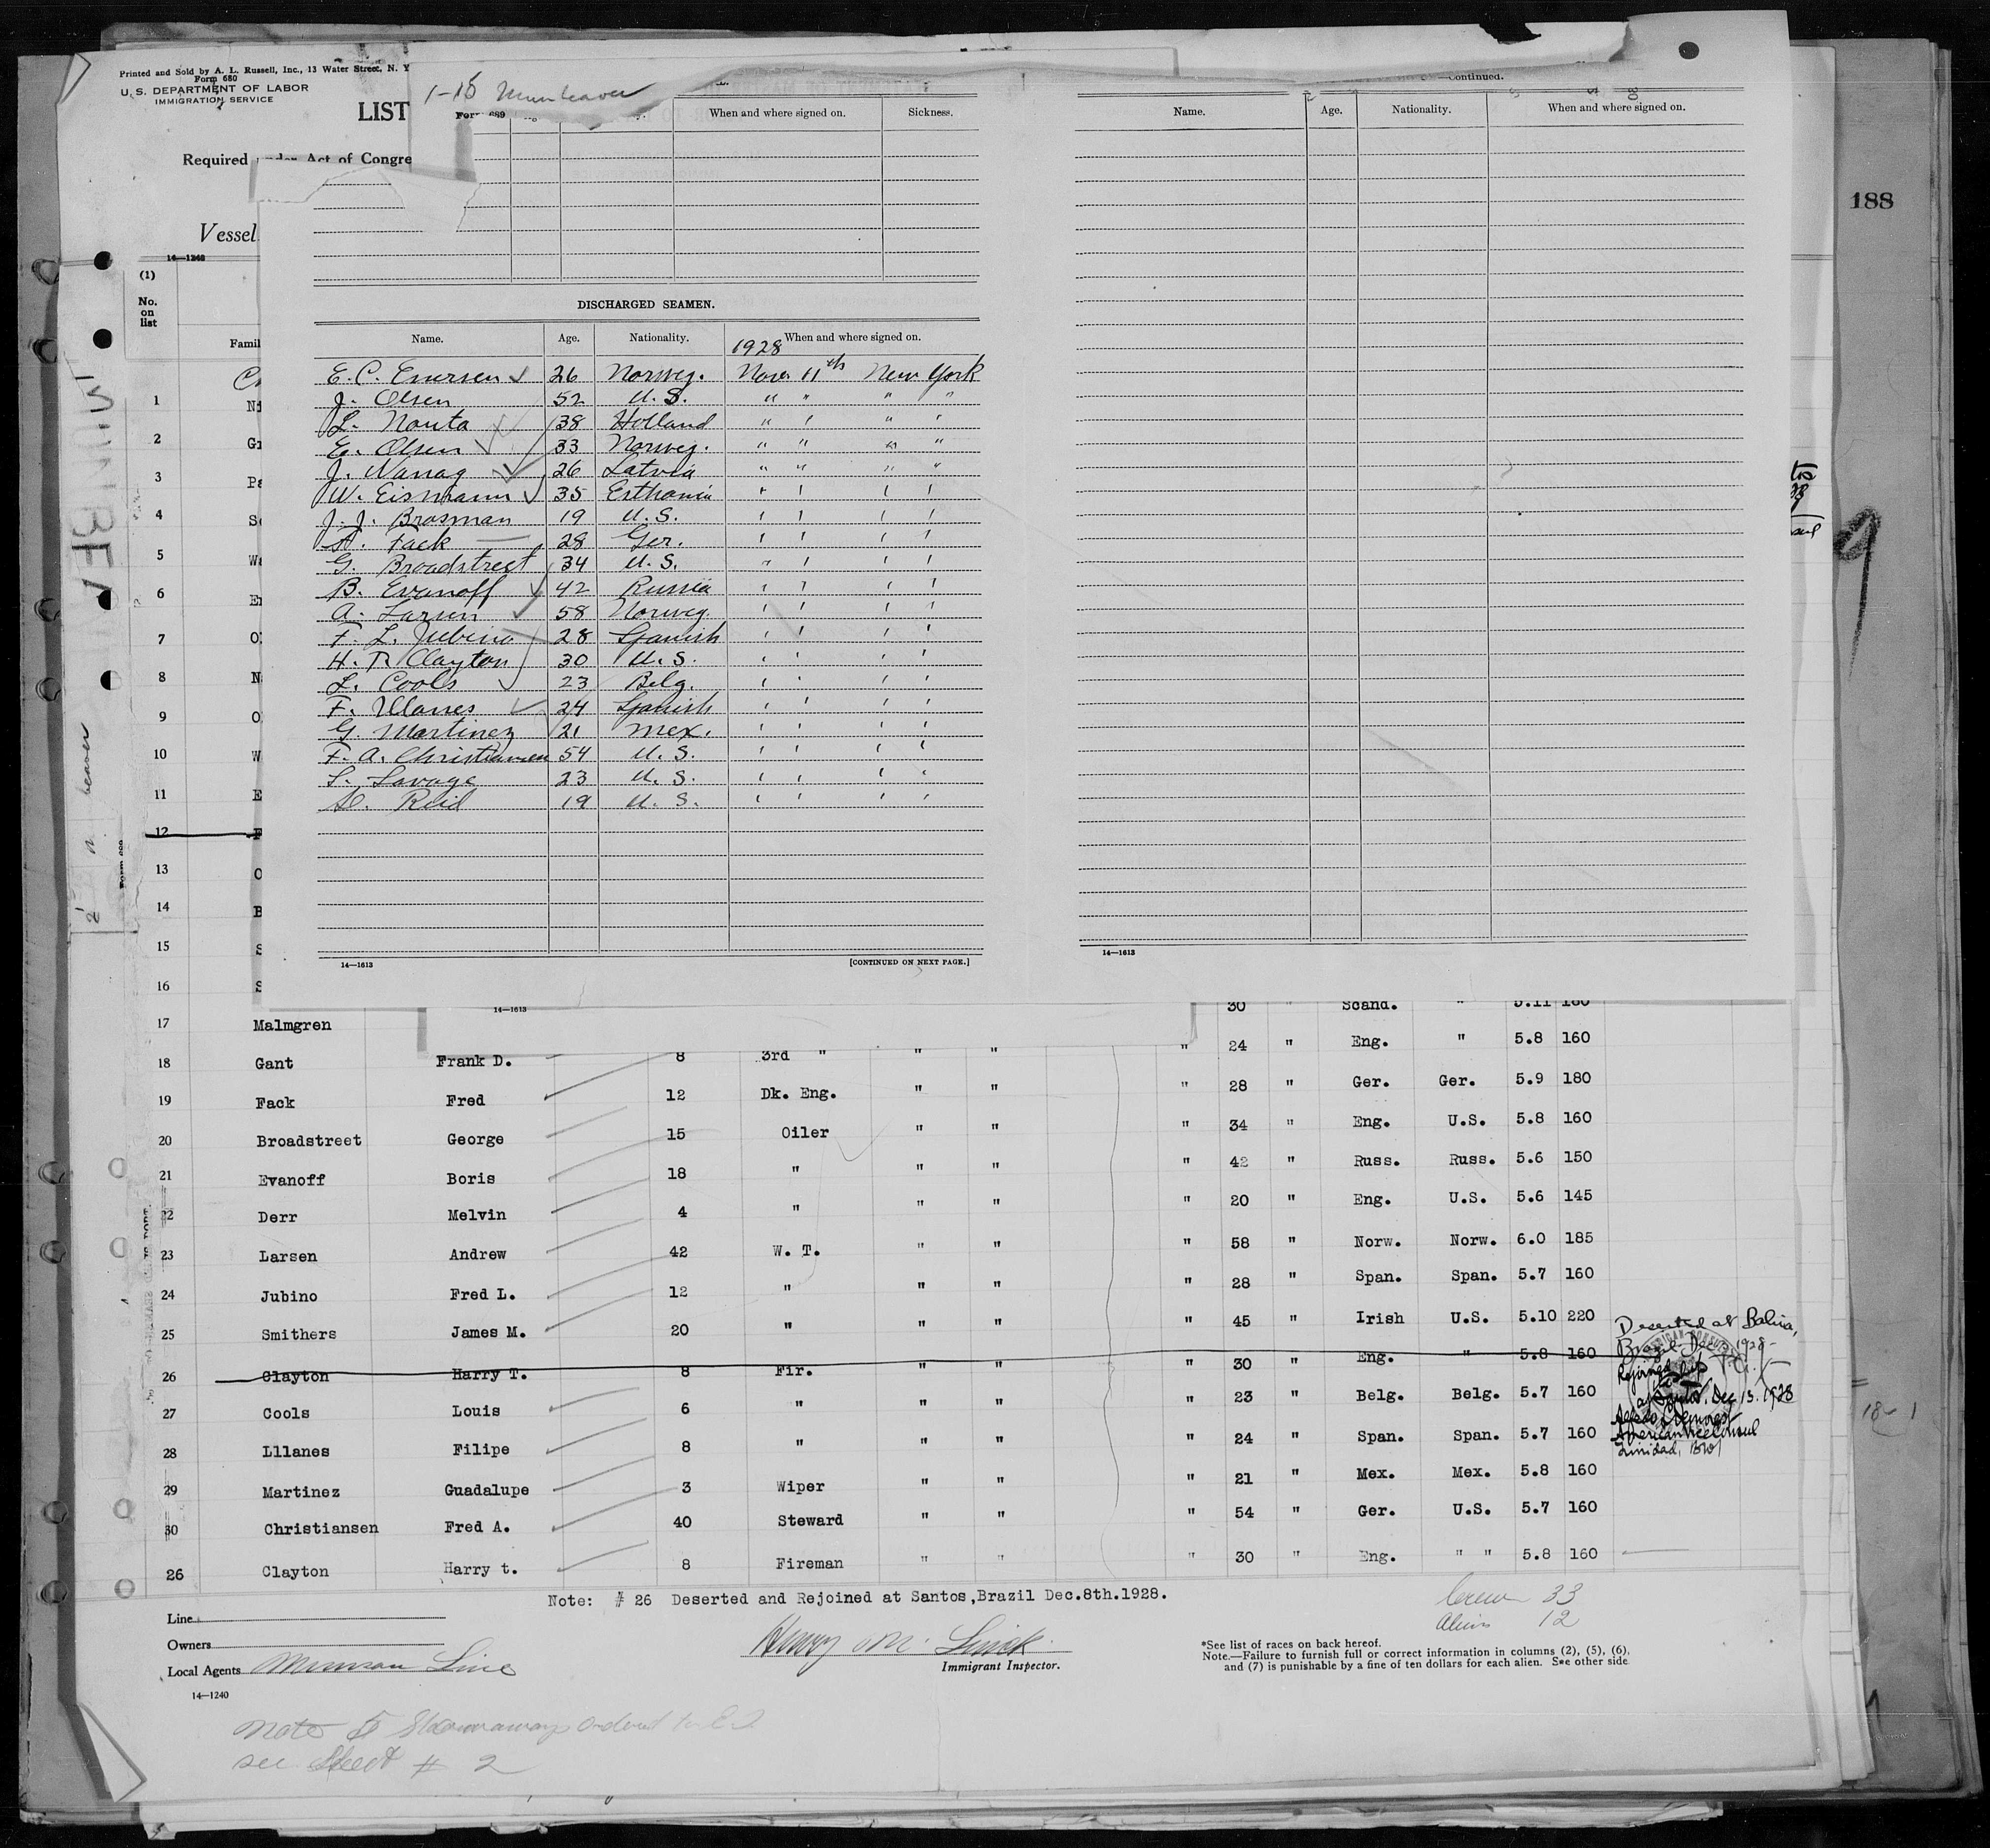 Printed and Sold by A. L. Russell, Inc., 13 Water Street, N. Y
Form 680
U. S. DEPARTMENT OF LABOR
IMMIGRATION SERVICE
LIST
Required under Act of Congre
Vessel
14—1240
(1)
No. on list
Famil
1-15 Munbeaver
Form 689
When and where signed on.
Sickness.
—Continued.
Name. Age. Nationality. When and where signed on.
188
DISCHARGED SEAMEN.
Name. Age. Nationality. When and where signed on.
1928
E. C. Enersen 26 Norweg. Nov. 11th New York
J. Olsen 52 U. S. " " " "
L. Nauta 38 Holland " " " "
E. Olsen 33 Norweg. " " " "
J. Nanag 26 Latvia " " " "
W. Eismann 35 Esthonia " " " "
J. J. Brosman 19 U. S. " " " "
Fack 28 Ger. " " " "
G. Broadstreet 34 U. S. " " " "
B. Evanoff 42 Russia " " " "
A. Larsen 58 Norweg. " " " "
F. L. Jubino 28 Spanish " " " "
H. T. Clayton 30 U. S. " " " "
L. Cools 23 Belg. " " " "
F. Lllanes 24 Spanish " " " "
G. Martinez 21 Mex. " " " "
F. A. Christiansen 54 U. S. " " " "
L. Savage 23 U. S. " " " "
Reid 19 U. S. " " " "
14—1613
[CONTINUED ON NEXT PAGE.]
14—1613
1
2
3
4
5
6
7
8
9
10
11
12
13
14
15
16
14—1613
30 " Scand. " 5.11 160
17 Malmgren
" 24 " Eng. " 5.8 160
18 Gant Frank D. 8 3rd " " "
" 28 " Ger. Ger. 5.9 180
19 Fack Fred 12 Dk. Eng. " "
20 Broadstreet George 15 Oiler " " " 34 " Eng. U.S. 5.8 160
21 Evanoff Boris 18 " " " " 42 " Russ. Russ. 5.6 150
22 Derr Melvin 4 " " " " 20 " Eng. U.S. 5.6 145
23 Larsen Andrew 42 W. T. " " " 58 " Norw. Norw. 6.0 185
24 Jubino Fred L. 12 " " " " 28 " Span. Span. 5.7 160
25 Smithers James M. 20 " " " " 45 " Irish U.S. 5.10 220
26 Clayton Harry T. 8 Fir. " " " 30 " Eng. " 5.8 160
Deserted at Bahia,
Brazil Dec 1928
Rejoined ship
at Santos, Dec 13. 1928
American Vice Consul
Trinidad, BWI
27 Cools Louis 6 " " " " 23 " Belg. Belg. 5.7 160
28 Lllanes Filipe 8 " " " " 24 " Span. Span. 5.7 160
29 Martinez Guadalupe 3 Wiper " " " 21 " Mex. Mex. 5.8 160
30 Christiansen Fred A. 40 Steward " " " 54 " Ger. U.S. 5.7 160
26 Clayton Harry t. 8 Fireman " " " 30 " Eng. " " 5.8 160
18-1
Note: # 26 Deserted and Rejoined at Santos,Brazil Dec.8th.1928.
Crew 33
Aliens 12
Line
Owners
Local Agents Munson Line
Immigrant Inspector.
*See list of races on back hereof.
Note.—Failure to furnish full or correct information in columns (2), (5), (6),
and (7) is punishable by a fine of ten dollars for each alien. See other side
14—1240
Note 5 Stowaways ordered to E I
see Sheet # 2